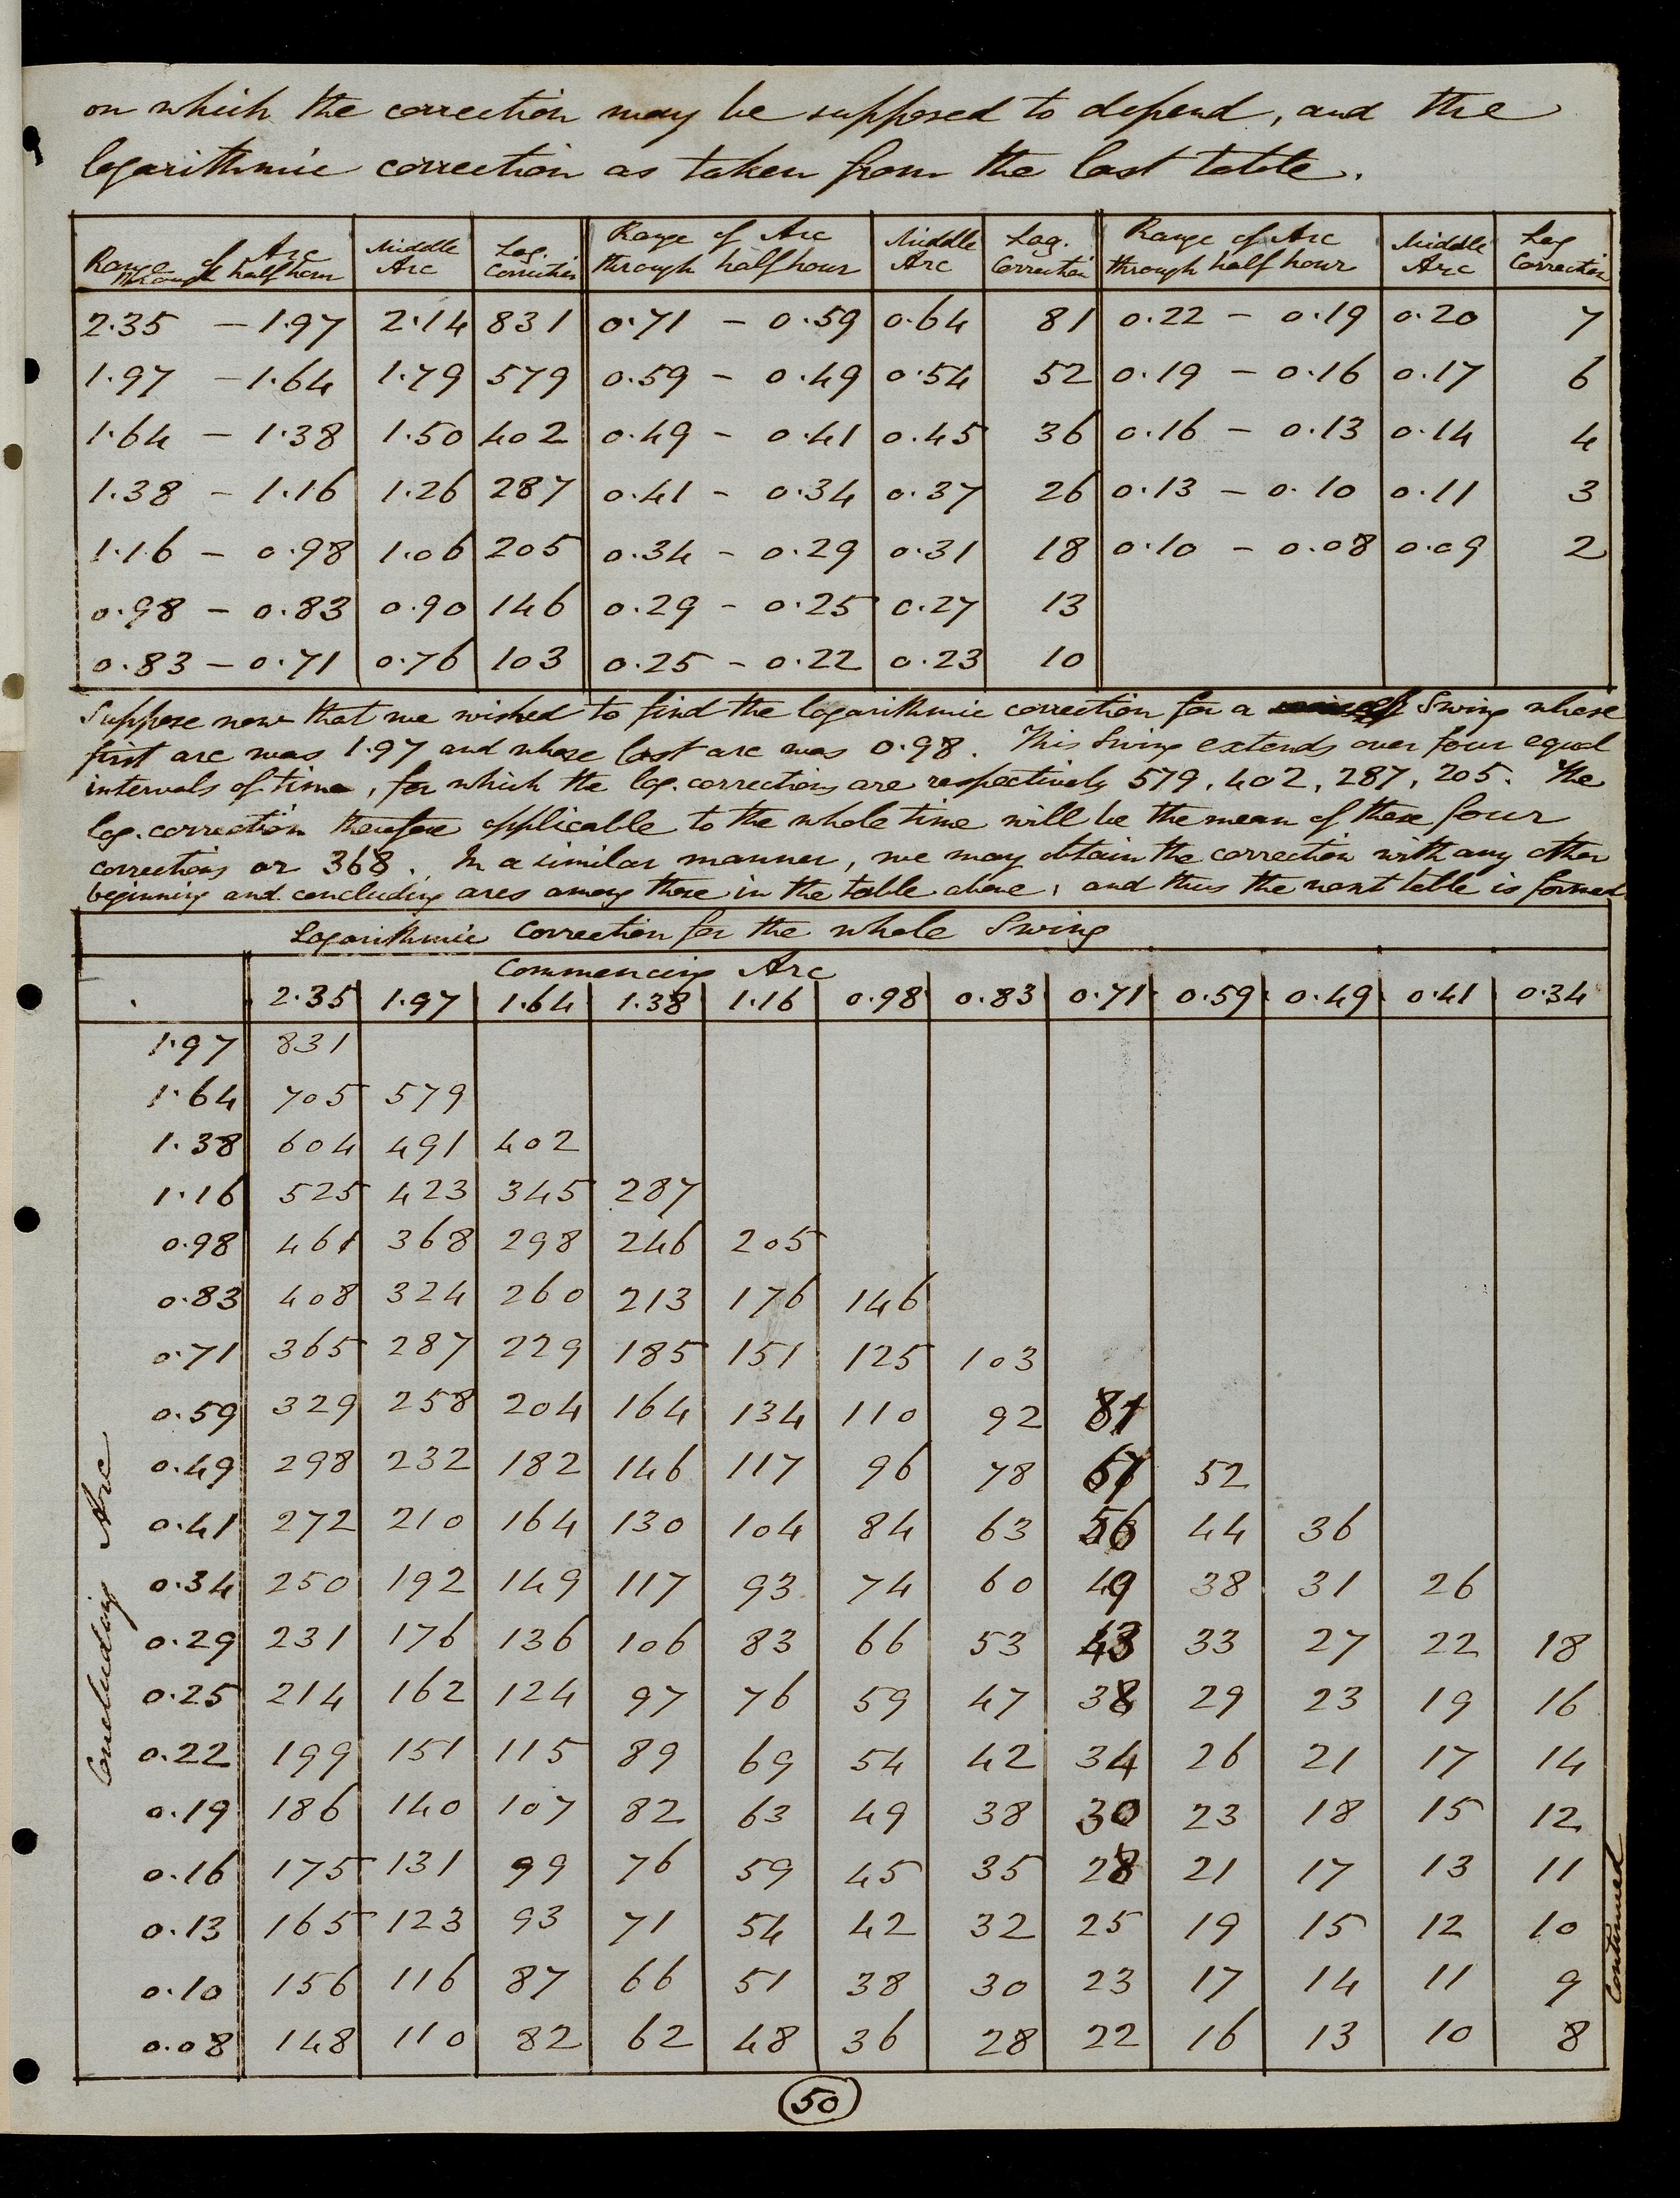 on which the correction may be supposed to depend, and the
logarithmic correction as taken from the last table.
Range of Arc through half hour | Middle Arc | Log. Correction | Range of Arc through half hour | Middle Arc | Log. Correction | Range of Arc through half hour | Middle Arc | Log Correction
2.35 – 1.97 | 2.14 | 831 | 0.71 – 0.59 | 0.64 | 81 | 0.22 – 0.19 | 0.20 | 7
1.97 – 1.64 | 1.79 | 579 | 0.59 – 0.49 | 0.54 | 52 | 0.19 – 0.16 | 0.17 | 6
1.64 – 1.38 | 1.50 | 402 | 0.49 – 0.41 | 0.45 | 36 | 0.16 – 0.13 | 0.14 | 4
1.38 – 1.16 | 1.26 | 287 | 0.41 – 0.34 | 0.37 | 26 | 0.13 – 0.10 | 0.11 | 3
1.16 – 0.98 | 1.06 | 205 | 0.34 – 0.29 | 0.31 | 18 | 0.10 – 0.08 | 0.09 | 2
0.98 – 0.83 | 0.90 | 146 | 0.29 – 0.25 | 0.27 | 13
0.83 – 0.71 | 0.76 | 103 | 0.25 – 0.22 | 0.23 | 10
Suppose now that we wished to find the logarithmic correction for a Swing whose
first arc was 1.97 and whose last arc was 0.98. This Swing extends over four equal
intervals of time, for which the log. corrections are respectively 579, 402, 287, 205. The
log. correction therefore applicable to the whole time will be the mean of these four
corrections or 368. In a similar manner, we may obtain the correction with any other
beginning and concluding arcs among those in the table above, and thus the next table is formed
Logarithmic Correction for the whole Swing
Commencing Arc
2.35 | 1.97 | 1.64 | 1.38 | 1.16 | 0.98 | 0.83 | 0.71 | 0.59 | 0.49 | 0.41 | 0.34
Concluding Arc
1.97 | 831
1.64 | 705 | 579
1.38 | 604 | 491 | 402
1.16 | 525 | 423 | 345 | 287
0.98 | 461 | 368 | 298 | 246 | 205
0.83 | 408 | 324 | 260 | 213 | 176 | 146
0.71 | 365 | 287 | 229 | 185 | 151 | 125 | 103
0.59 | 329 | 258 | 204 | 164 | 134 | 110 | 92 | 81
0.49 | 298 | 232 | 182 | 146 | 117 | 96 | 78 | 67 | 52
0.41 | 272 | 210 | 164 | 130 | 104 | 84 | 63 | 56 | 44 | 36
0.34 | 250 | 192 | 149 | 117 | 93 | 74 | 60 | 49 | 38 | 31 | 26
0.29 | 231 | 176 | 136 | 106 | 83 | 66 | 53 | 43 | 33 | 27 | 22 | 18
0.25 | 214 | 162 | 124 | 97 | 76 | 59 | 47 | 38 | 29 | 23 | 19 | 16
0.22 | 199 | 151 | 115 | 89 | 69 | 54 | 42 | 34 | 26 | 21 | 17 | 14
0.19 | 186 | 140 | 107 | 82 | 63 | 49 | 38 | 30 | 23 | 18 | 15 | 12
0.16 | 175 | 131 | 99 | 76 | 59 | 45 | 35 | 28 | 21 | 17 | 13 | 11
0.13 | 165 | 123 | 93 | 71 | 54 | 42 | 32 | 25 | 19 | 15 | 12 | 10
0.10 | 156 | 116 | 87 | 66 | 51 | 38 | 30 | 23 | 17 | 14 | 11 | 9
0.08 | 148 | 110 | 82 | 62 | 48 | 36 | 28 | 22 | 16 | 13 | 10 | 8
Continued
50